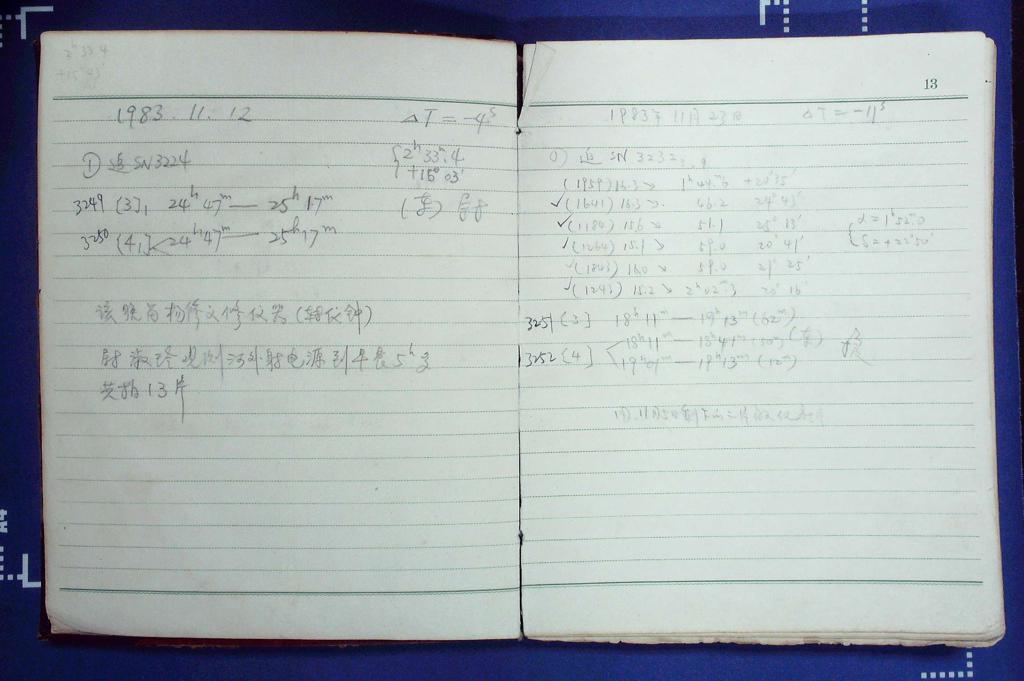 2ʰ 33.4
+15° 43′
1983. 11. 12 ΔT = -4ˢ
① 追 SN3224 { 2ʰ 33ᵐ.4
+16° 03′
3249 [3], 24ʰ 47ᵐ — 25ʰ 17ᵐ (东)
3250 [4] < 24ʰ 47ᵐ — 25ʰ 17ᵐ
该晚 杨修文修仪器 (转仪钟)
观测河外射电源到 5ʰ
共拍 13 片
13
1983年 11月 23日 ΔT = -11ˢ
① 追 SN 3232
(1959) 16.3 1ʰ 44ᵐ.6 +20° 35′
✓(1641) 16.3 46.2 24° 43′
✓(1184) 15.6 51.1 25° 13′ { α = 1ʰ 52ᵐ.0
✓(1264) 15.9 59.0 20° 41′ δ = +22° 50′
✓(1843) 16.0 59.0 21° 25′
✓(1243) 15.2 2ʰ 02ᵐ.3 20° 16′
3251 [3] 18ʰ 11ᵐ — 19ʰ 13ᵐ (62ᵐ)
3252 [4] < 18ʰ 11ᵐ — 18ʰ 41ᵐ (30ᵐ) (东)
19ʰ 01ᵐ — 19ʰ 13ᵐ (12ᵐ)